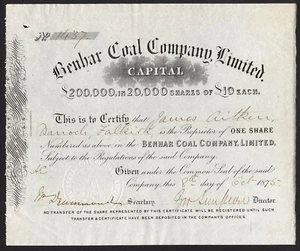 No 1487
Benhar Coal Company, Limited.
CAPITAL
$200,000, IN 20,000 SHARES OF $10 EACH.
This is to Certify that James Aitken,
Darroch, Falkirk is the Proprietor of ONE SHARE
Numbered as above, in the BENHAR COAL COMPANY, LIMITED,
Subject to the Regulations of the said Company.
Given under the Common Seal of the said
Company, this 8th day of Oct 1875
Wm Drummond Secretary. Director.
NO TRANSFER OF THE SHARE REPRESENTED BY THIS CERTIFICATE WILL BE REGISTERED UNTIL SUCH
TRANSFER & CERTIFICATE HAVE BEEN DEPOSITED IN THE COMPANY'S OFFICES.